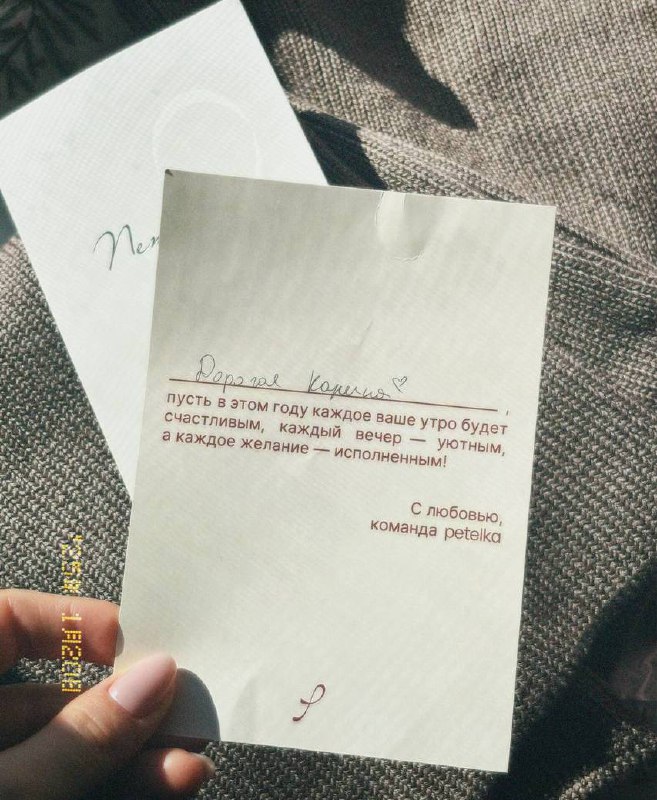 Дорогая Карелия ♡,
пусть в этом году каждое ваше утро будет
счастливым, каждый вечер — уютным,
а каждое желание — исполненным!
С любовью,
команда petelka